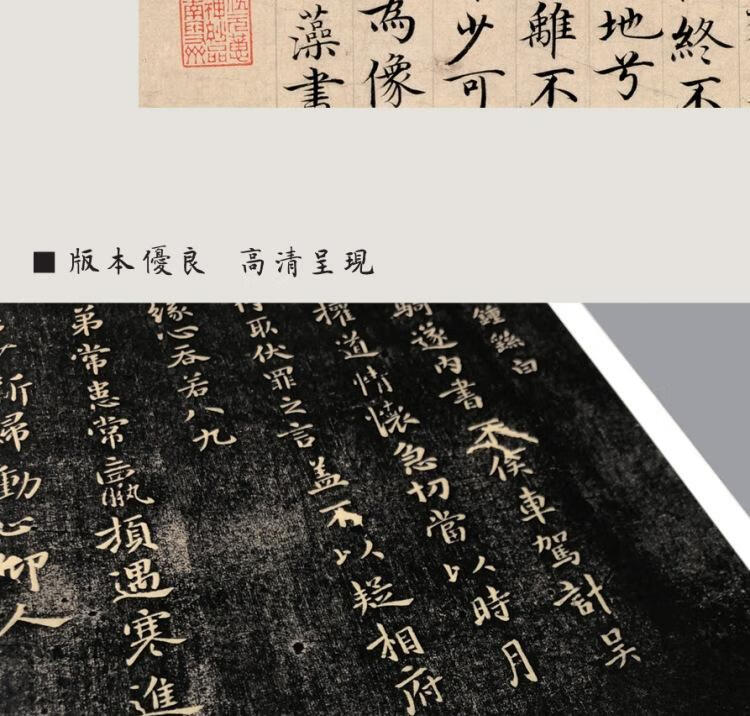 終不
地兮
離不
少可
為像
藻書
版本優良 高清呈現
鍾繇白
騎遂內書不俟車駕計吳
權道情懷急切當以時月
取伏罪之言蓋不以疑相府
緣心吞若八九
弟常患常羸頓遇寒進
新婦動止仰人